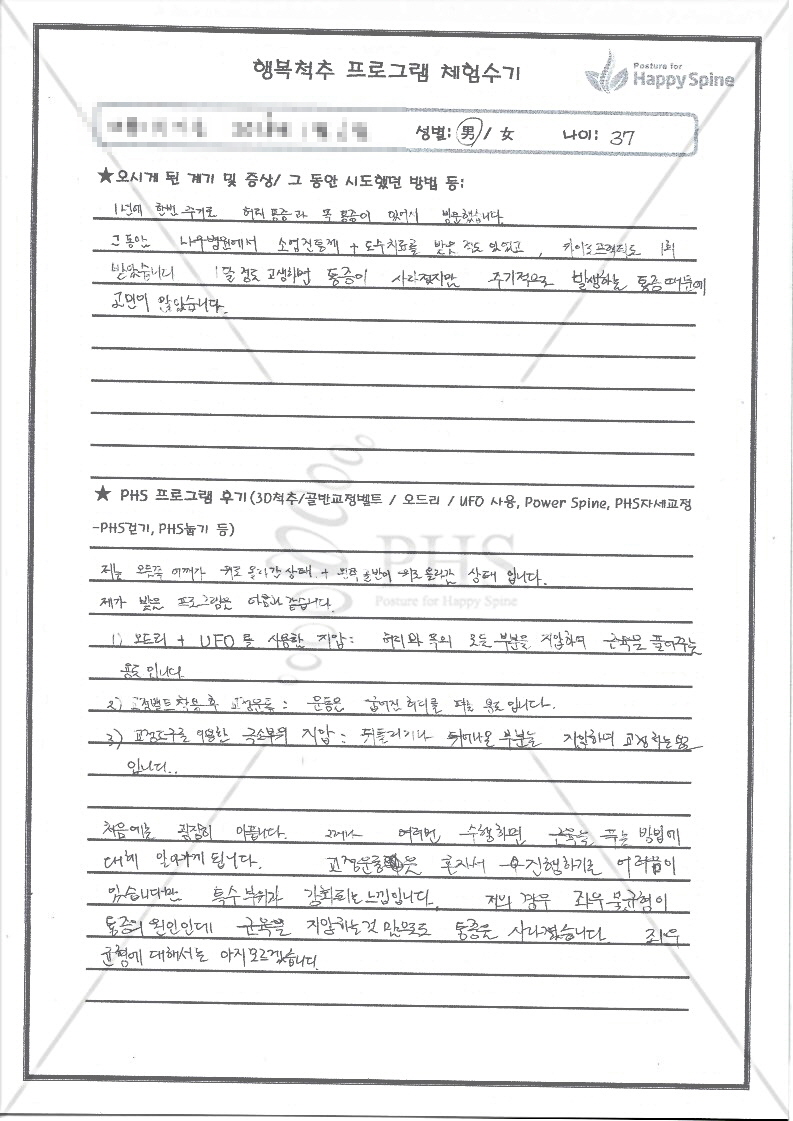 행복척추 프로그램 체험수기
Posture for
Happy Spine
성별: 男 / 女 나이: 37
★오시게 된 계기 및 증상/ 그 동안 시도했던 방법 등:
1년에 한번 주기로 허리 통증과 목 통증이 있어서 방문했습니다.
그동안 나우병원에서 소염진통제 + 도수치료를 받은 적도 있었고, 카이로프랙틱도 1회
받았습니다 1달 정도 고생하면 통증이 사라졌지만 주기적으로 발생하는 통증때문에
고민이 많았습니다.
★ PHS 프로그램 후기(3D척추/골반교정벨트 / 오드리 / UFO 사용, Power Spine, PHS자세교정
-PHS걷기, PHS눕기 등)
PHS
Posture for Happy Spine
저는 오른쪽 어깨가 위로 올라간 상태 + 왼쪽 골반이 위로 올라간 상태 입니다.
제가 받은 프로그램은 다음과 같습니다.
1) 오드리 + UFO 를 사용한 지압: 허리와 목의 모든 부분을 지압하며 근육을 풀어주는
용도 입니다.
2) 교정벨트 착용 후 교정운동: 운동은 굽어진 허리를 펴는 용도 입니다.
3) 교정도구를 이용한 국소부위 지압: 뒤틀리거나 튀어나온 부분을 지압하며 교정하는
입니다..
처음에는 굉장히 아픕니다. 그러나 여러번 수행하면 근육을 푸는 방법에
대해 알아가게 됩니다. 교정운동은 혼자서 진행하기로 어려움이
있습니다만 특수부위가 강화되는 느낌입니다. 저의 경우 좌우 불균형이
통증의 원인인데 근육을 지압하는것 만으로도 통증은 사라졌습니다. 좌우
균형에 대해서는 아직 모르겠습니다.